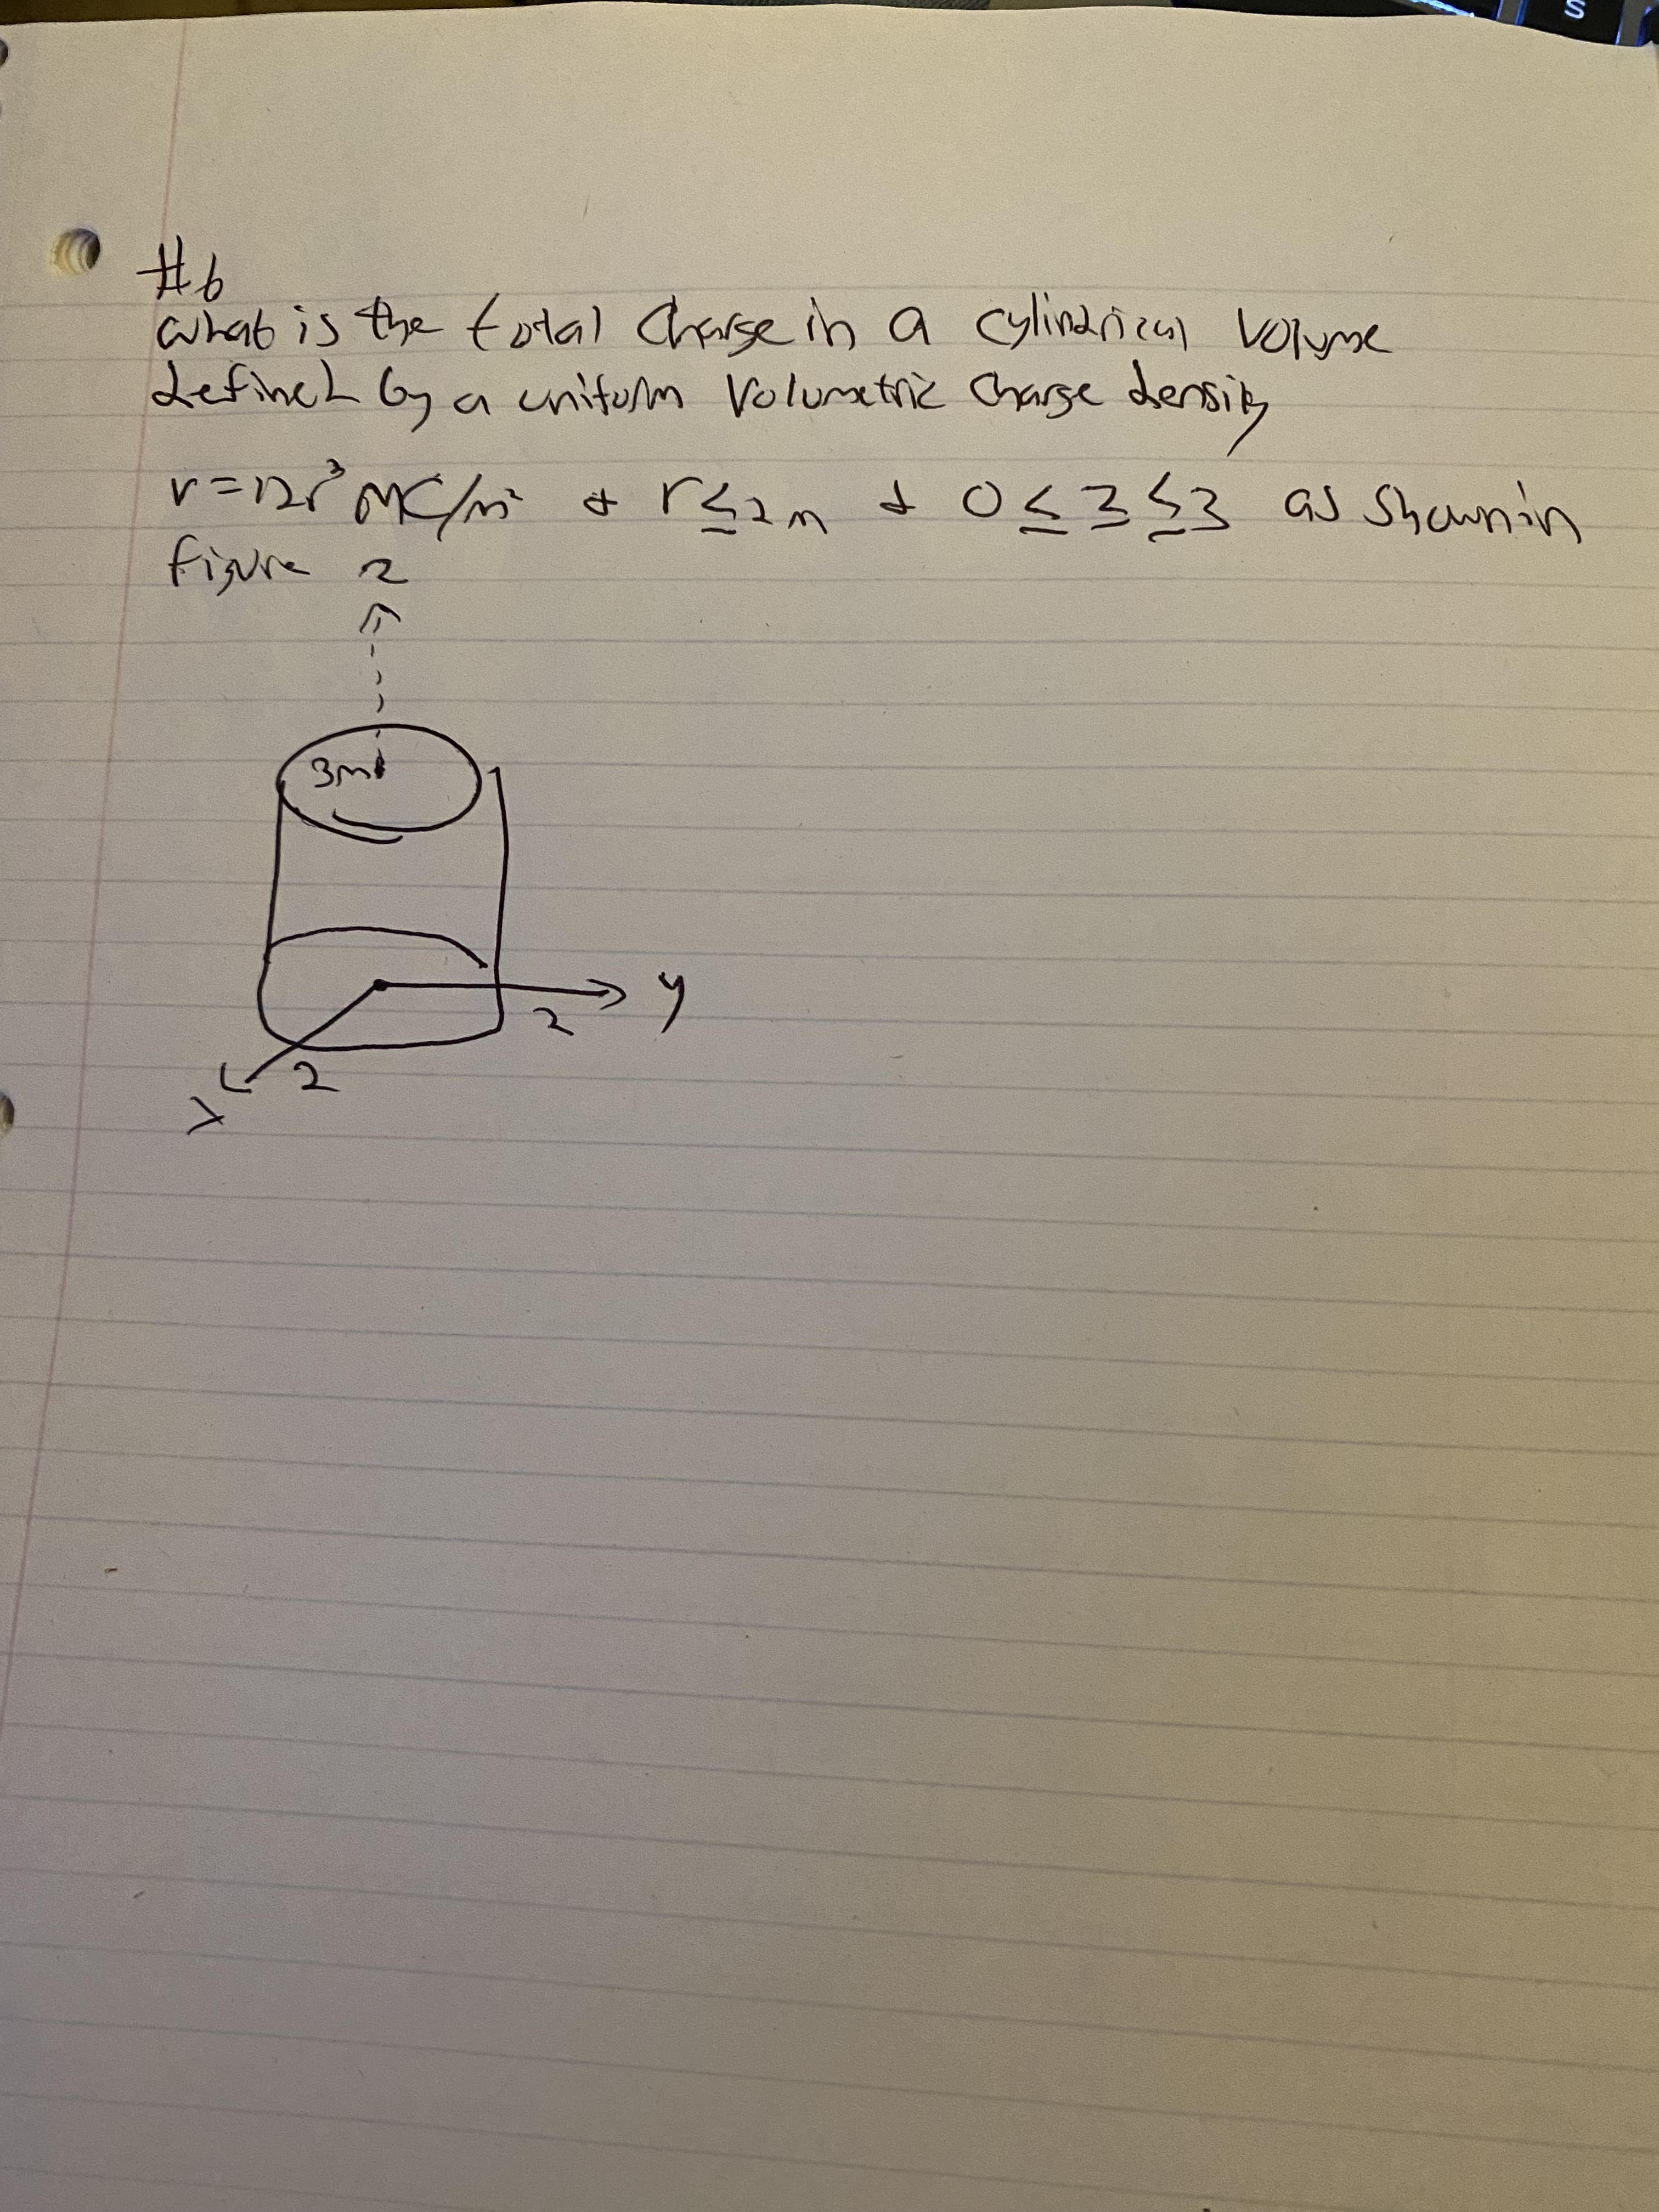 #6
what is the total Charge in a cylindrical volume
defined by a uniform Volumetric Charge density
v=12r³ MC/m² & r≤2m & 0≤z≤3 as shown in
figure 2
3m
y
2
2
x
S